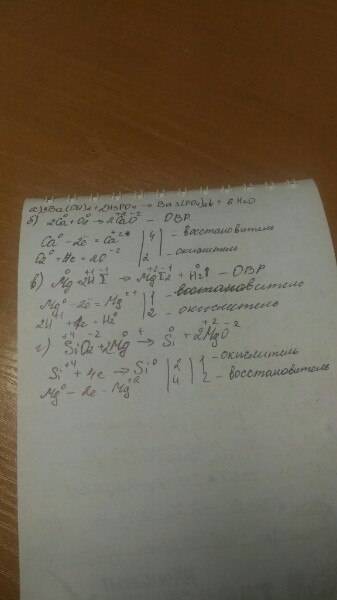 а) 3Ba(OH)2 + 2H3PO4 → Ba3(PO4)2↓ + 6H2O
б) 2Ca⁰ + O2⁰ → 2Ca⁺²O⁻² – ОВР
Ca⁰ – 2e = Ca⁺² | 4 | – восстановитель
O2⁰ + 4e = 2O⁻² | 2 – окислитель
в) Mg⁰ + 2H⁺¹I⁻¹ → Mg⁺²I2⁻¹ + H2⁰↑ – ОВР
Mg⁰ – 2e = Mg²⁺ | 1 – восстановитель
2H⁺¹ + 2e = H2⁰ | 2 – окислитель
г) Si⁺⁴O2⁻² + 2Mg⁰ → Si⁰ + 2Mg⁺²O⁻²
Si⁺⁴ + 4e → Si⁰ | 2 | 1 – окислитель
Mg⁰ – 2e – Mg⁺² | 4 | 2 – восстановитель